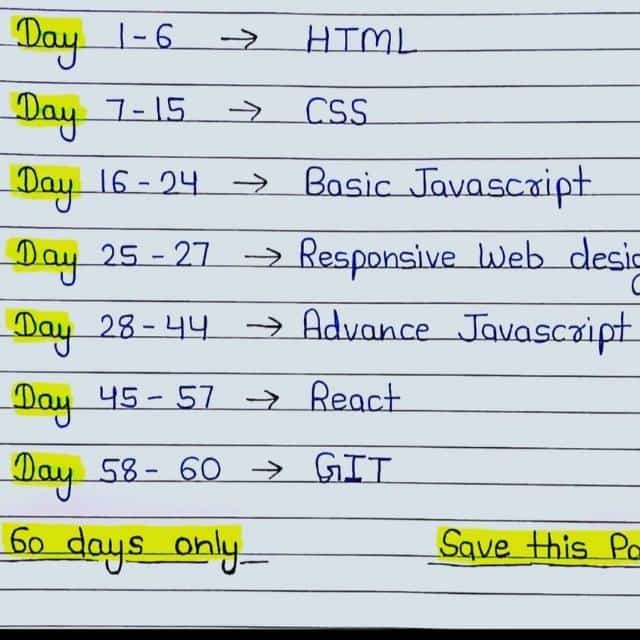 Day 1-6 → HTML
Day 7-15 → CSS
Day 16-24 → Basic Javascript
Day 25-27 → Responsive Web desig
Day 28-44 → Advance Javascript
Day 45-57 → React
Day 58-60 → GIT
60 days only Save this Po